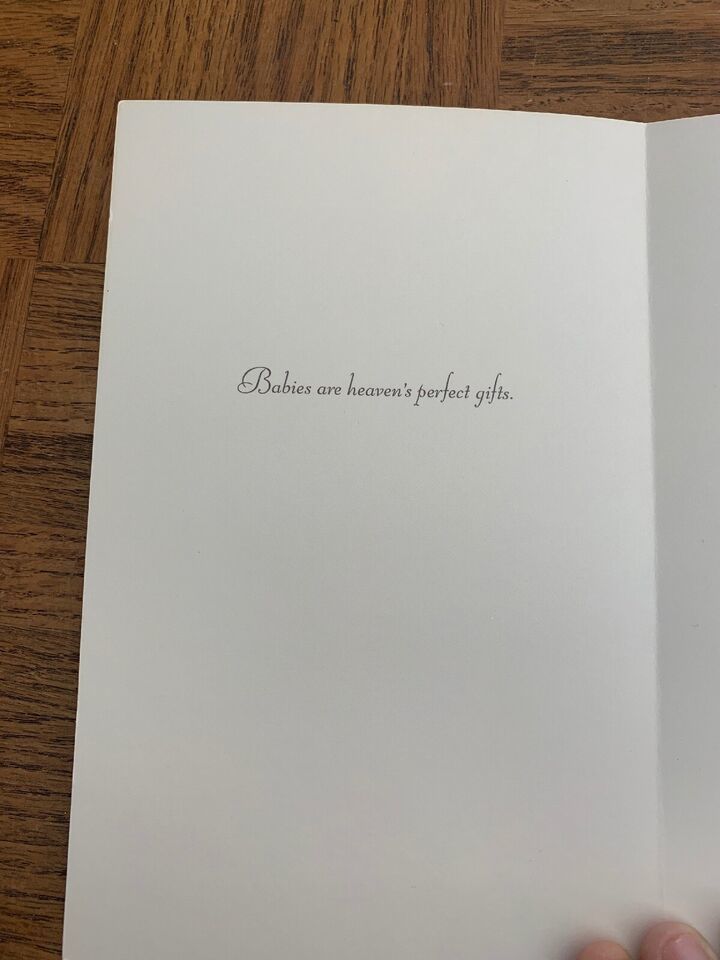 Babies are heaven's perfect gifts.